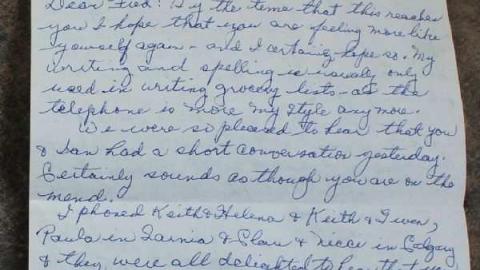 Dear Fred: By the time that this reaches
you I hope that you are feeling more like
yourself again - and I certainly hope so. My
writing and spelling is usually only
used in writing grocery lists - as the
telephone is more my style any more.
We were so pleased to hear that you
& Ian had a short conversation yesterday.
Certainly sounds as though you are on the
mend.
I phoned Keith & Helena & Keith & Gwen,
Paula in Sarnia & & in Calgary
& they were all delighted to hear that